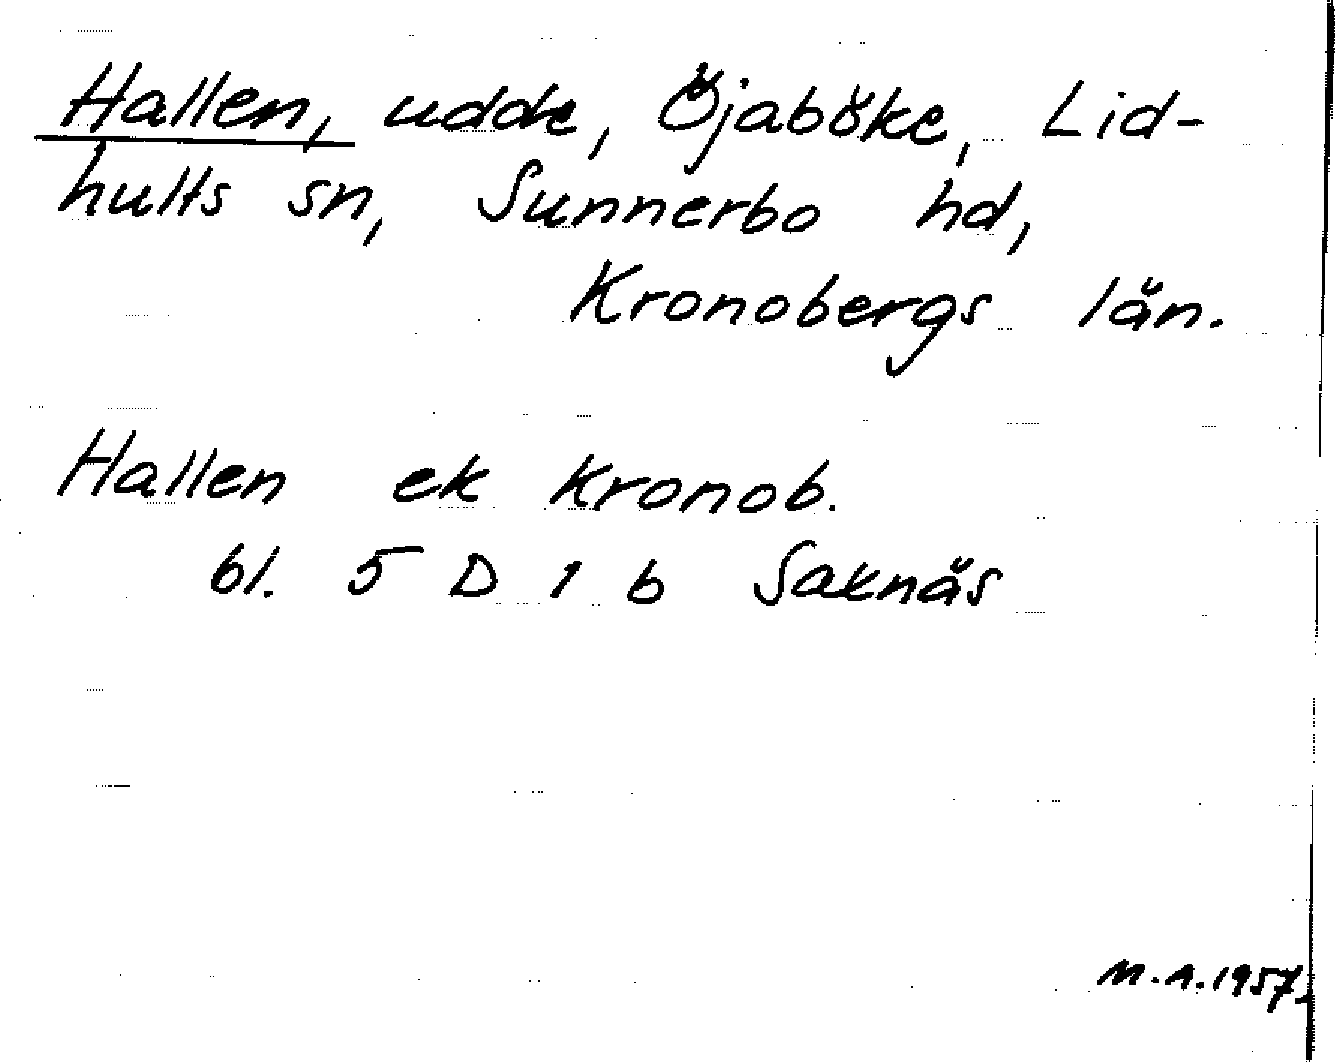 Hallen, udde, Öjaböke, Lid-
hults sn, Sunnerbo hd,
Kronobergs län.
Hallen ek Kronob.
bl. 5 D 1 b Saknäs
M.A.1957.